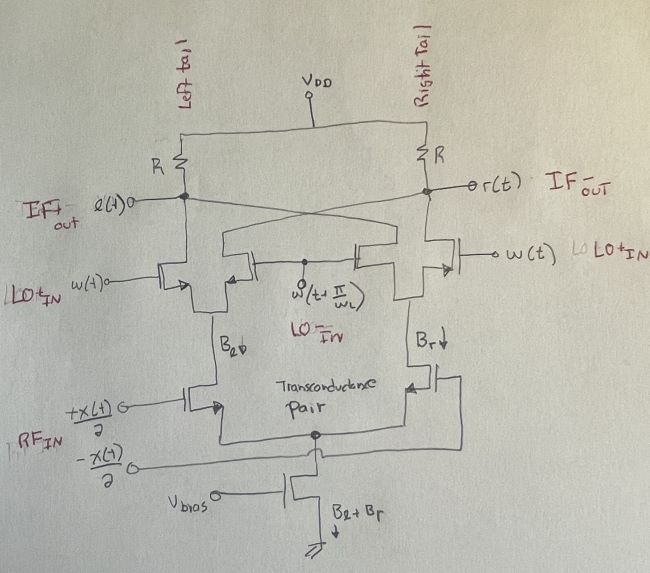 Left tail
Right Tail
VDD
R
R
IF+out
l(t)
r(t)
IF-OUT
LO+IN
w(t)
w(t)
LO+IN
w(t+π/ωL)
LO-IN
Bl↓
Br↓
Transconductance
Pair
+x(t)/2
RFIN
-x(t)/2
Vbias
Bl+Br
↓